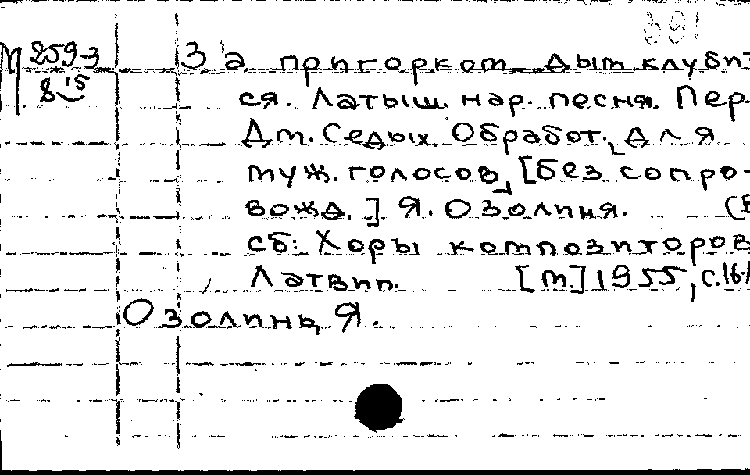 891
М 259-3
8 15
За пригорком дым клубит-
ся. Латыш. нар. песня. Пер.
Дм. Седых. Обработ. для
муж. голосов, [без сопро-
вожд.] Я. Озолиня. (В
сб: Хоры композиторов
Латвии. [М.] 1955, с.16-
Озолинь, Я.